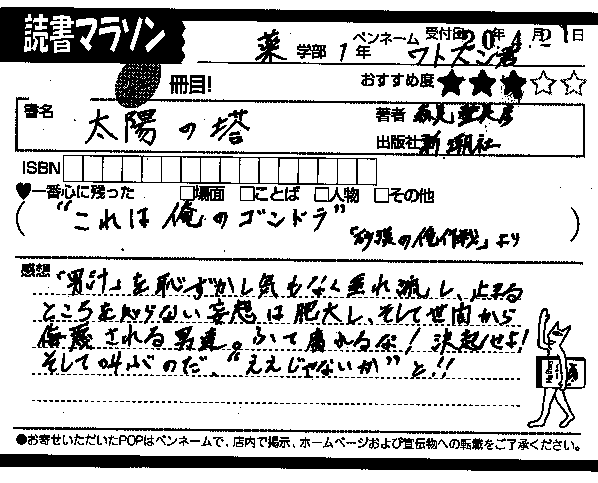 読書マラソン
薬 学部 1 年 ペンネーム ワトスン君 受付日 20年 4月 21日
冊目!
おすすめ度 ★★★☆☆
書名 太陽の塔
著者 森見登美彦
出版社 新潮社
ISBN
♥一番心に残った □場面 □ことば □人物 □その他
( "これは俺のゴンドラ"
「砂漠の俺作戦」より )
感想 「男汁」を恥ずかし気もなく垂れ流し、止まる
ところを知らない妄想は肥大し、そして世間から
侮蔑される男達。ふて腐れるな! 決起せよ!
そして叫ぶのだ、"ええじゃないか"と!!
●お寄せいただいたPOPはペンネームで、店内で掲示、ホームページおよび宣伝物への転載をご了承ください。